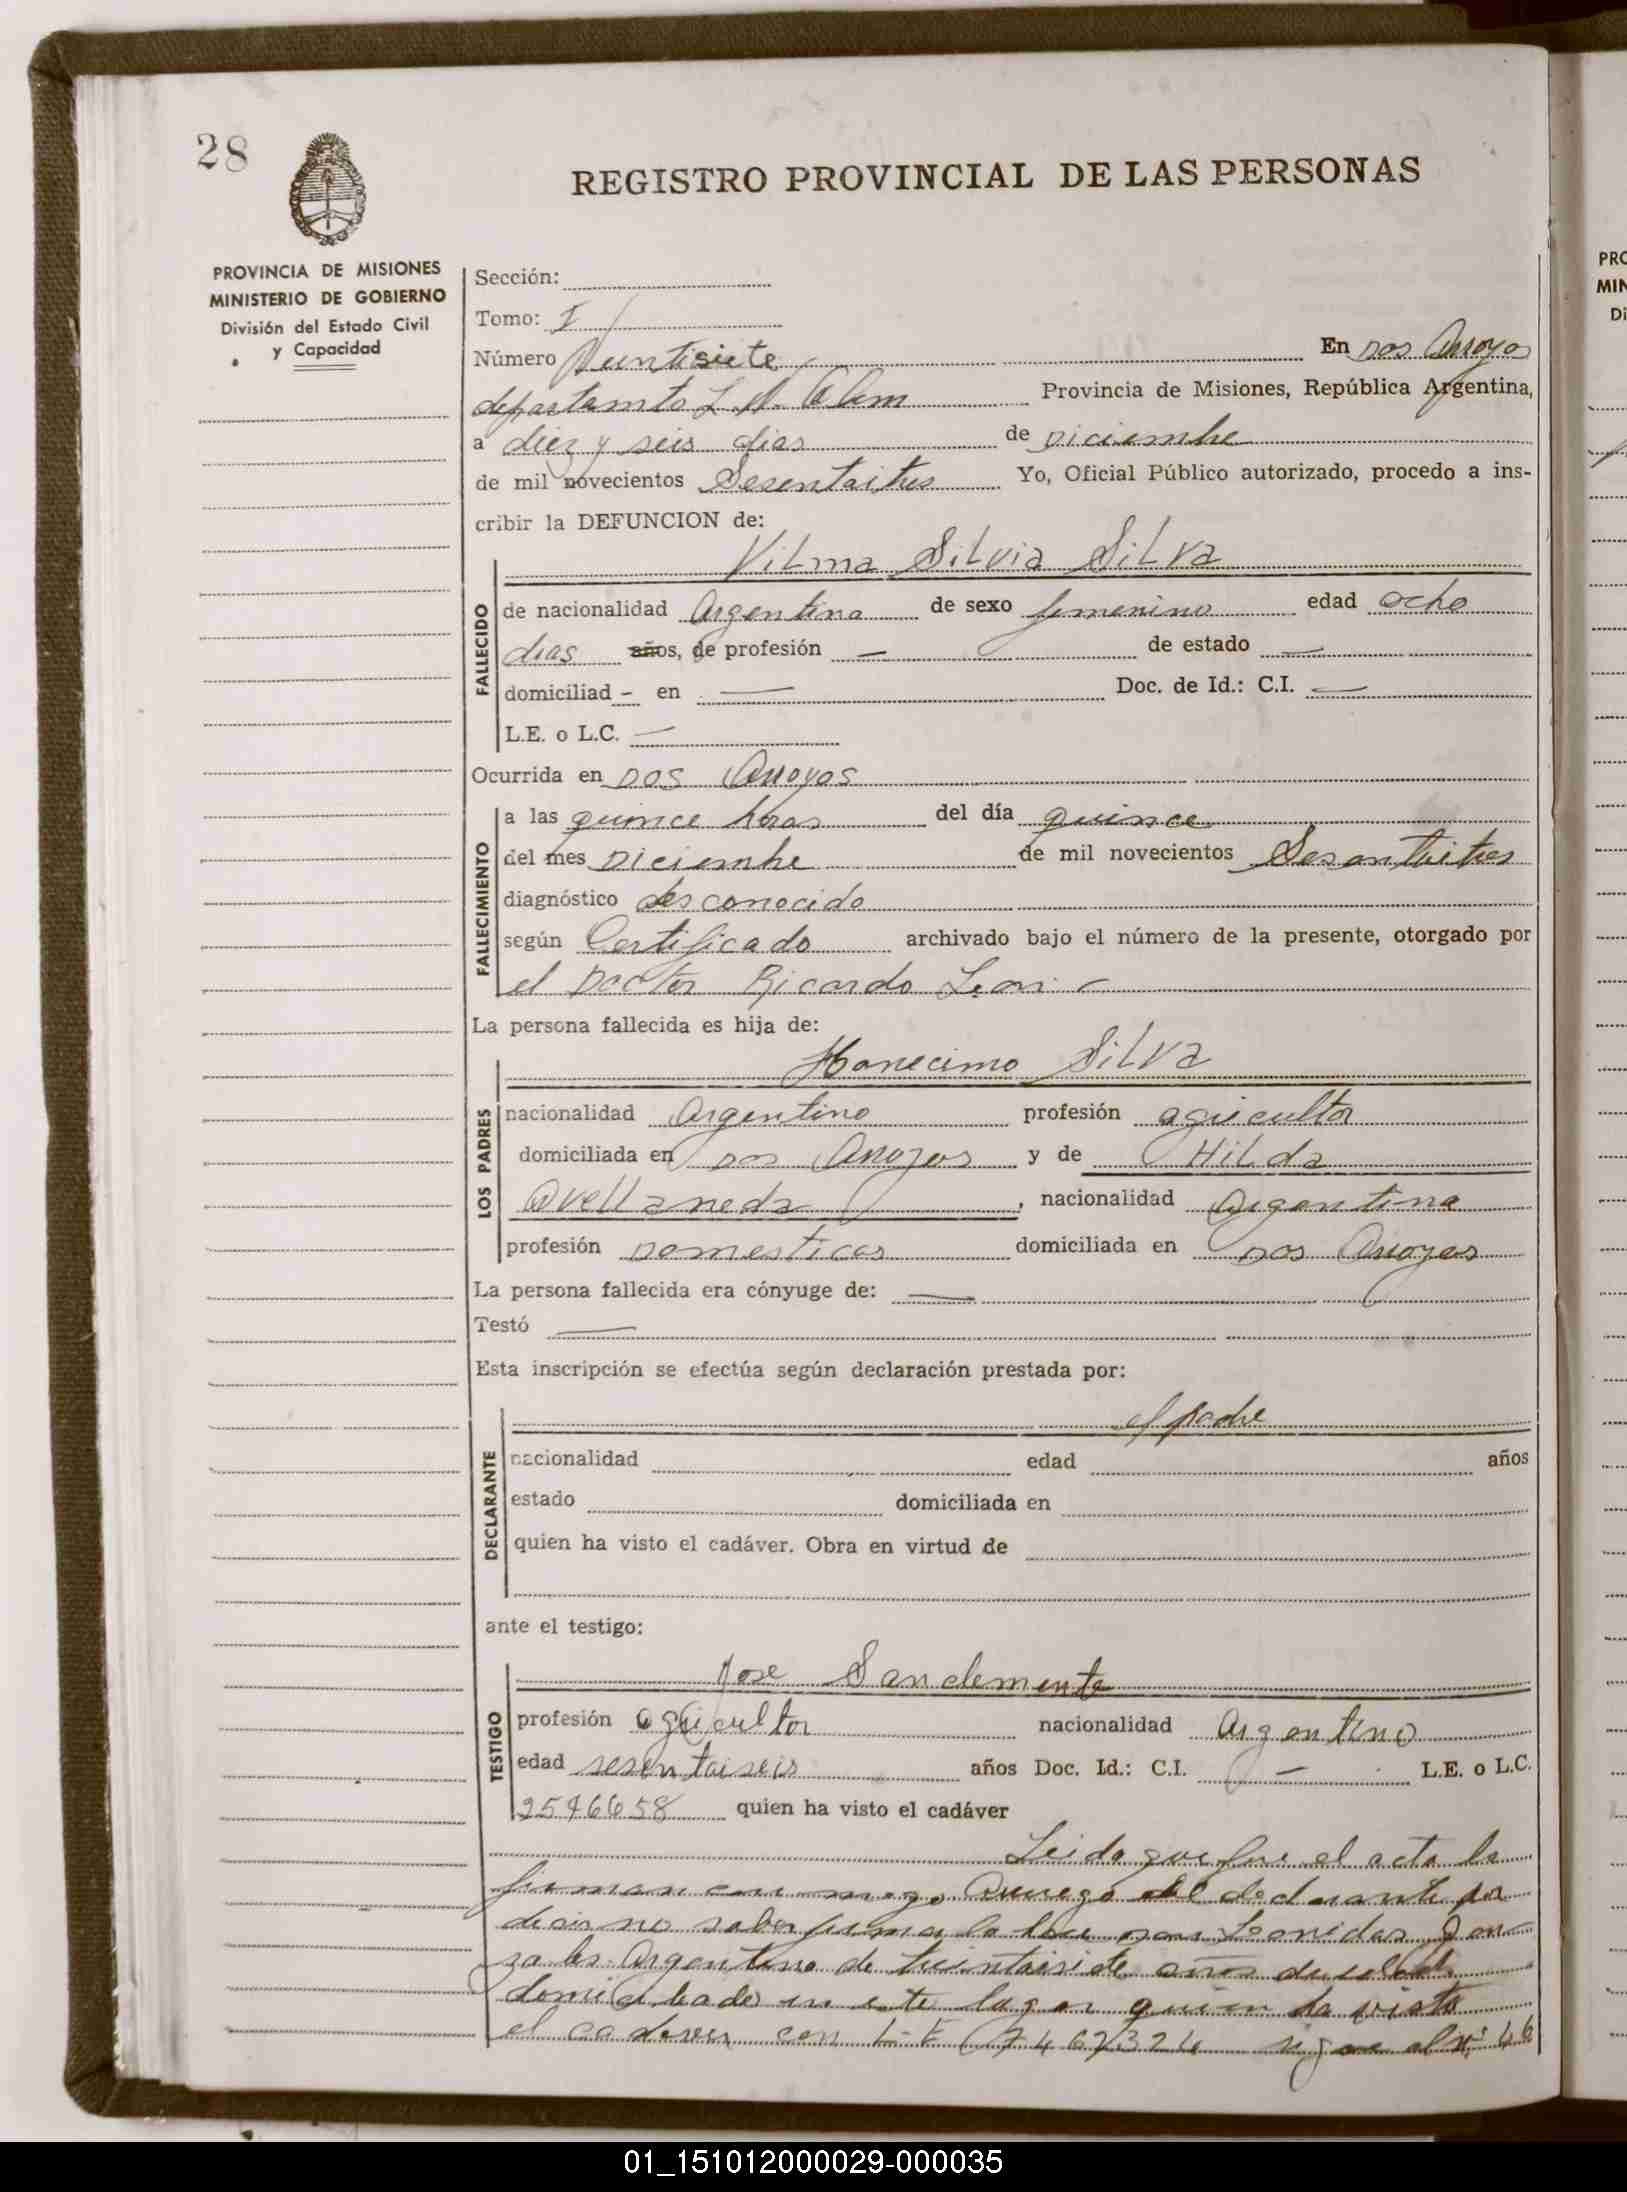 28
REGISTRO PROVINCIAL DE LAS PERSONAS
PROVINCIA DE MISIONES
MINISTERIO DE GOBIERNO
División del Estado Civil
y Capacidad
Sección:
Tomo: I
Número Veintisiete En Dos Arroyos
departamto L. N. Alem Provincia de Misiones, República Argentina,
a diez y seis dias de Diciembre
de mil novecientos Sesentaitres Yo, Oficial Público autorizado, procedo a ins-
cribir la DEFUNCION de:
Vilma Silvia Silva
FALLECIDO
de nacionalidad Argentina de sexo femenino edad ocho
dias años, de profesión — de estado —
domiciliad - en — Doc. de Id.: C.I. —
L.E. o L.C. —
Ocurrida en Dos Arroyos
FALLECIMIENTO
a las quince horas del día quince
del mes Diciembre de mil novecientos Sesentaitres
diagnóstico desconocido
según Certificado archivado bajo el número de la presente, otorgado por
el Doctor Ricardo Leon -
La persona fallecida es hija de:
Honecimo Silva
LOS PADRES
nacionalidad Argentino profesión agricultor
domiciliada en Dos Arroyos y de Hilda
Avellaneda, nacionalidad Argentina
profesión Domesticas domiciliada en Dos Arroyos
La persona fallecida era cónyuge de: —
Testó —
Esta inscripción se efectúa según declaración prestada por:
el padre
DECLARANTE
nacionalidad edad años
estado domiciliada en
quien ha visto el cadáver. Obra en virtud de
ante el testigo:
Jose Sanclemente
TESTIGO
profesión agricultor nacionalidad Argentino
edad sesentaiseis años Doc. Id.: C.I. — L.E. o L.C.
2546658 quien ha visto el cadáver
Leida que fue el acta la
firman conmigo. Aruego del declarante por
decir no saber firmar lo hace Leonidas Gon-
zales Argentino de treintaisiete años de edad
domiciliado en este lugar quien ha visto
el cadaver con L-E 7462324 sigue al Nº 46
01_151012000029-000035